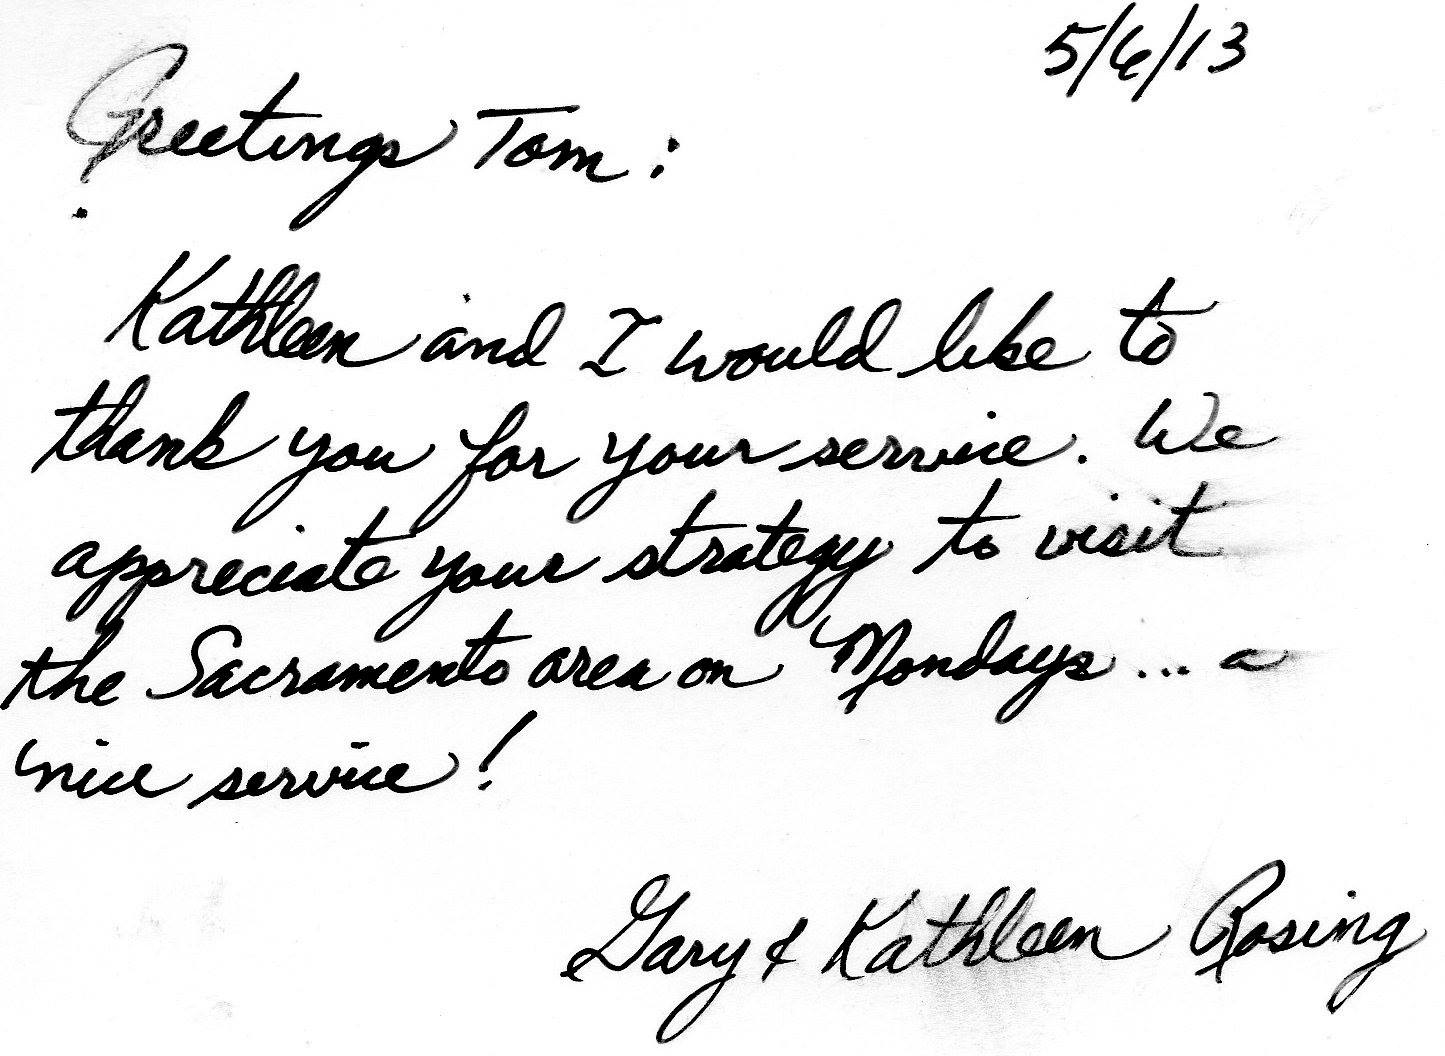 5/6/13
Greetings Tom:
Kathleen and I would like to
thank you for your service. We
appreciate your strategy to visit
the Sacramento area on Mondays... a
nice service!
Gary & Kathleen Rosing